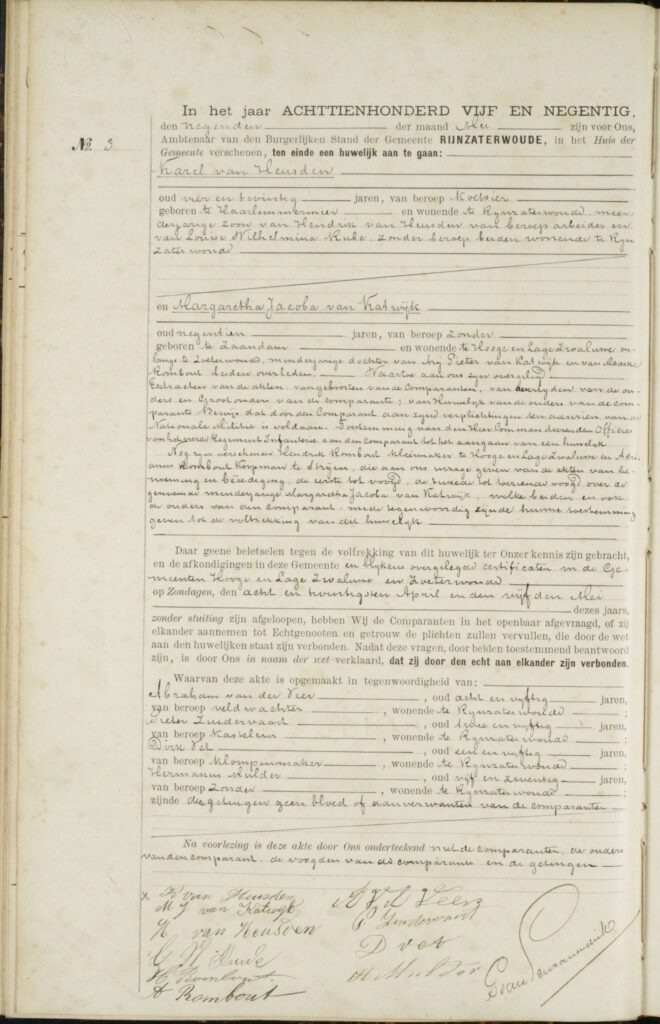 In het jaar ACHTTIENHONDERD VIJF EN NEGENTIG,
den negenden der maand Mei zijn voor Ons,
Ambtenaar van den Burgerlijken Stand der Gemeente RIJNZATERWOUDE, in het Huis der
No. 3
Gemeente verschenen, ten einde een huwelijk aan te gaan:
Karel van Heusden
oud vier en twintig jaren, van beroep Koetsier
geboren te Haarlemmermeer en wonende te Rynzaterwoude, meer
derjarige zoon van Hendrik van Heusden van beroep arbeider en
van Louise Wilhelmina Kube, zonder beroep beiden wonende te Ryn
zaterwoude
en Margaretha Jacoba van Katwijk
oud negentien jaren, van beroep zonder
geboren te Zaandam en wonende te Hooge en Lage Zwaluwe on
langs te Zoeterwoude, minderjarige dochter van Ary Pieter van Katwijk en van
Rombout beiden overleden. Waartoe aan ons zyn overgelegd
Extracten van de akten van geboorten van de Comparanten; van overlyden van de ou
ders en Grootouders van de comparante; van Huwelyk van de ouders van de com
parante. Bewys dat door den Comparant aan zyne verplichtingen ten aanzien van de
Nationale Militie is voldaan. Toestemming van den Heer Commandeerenden Officier
van het vierde Regiment Infanterie aan den Comparant tot het aangaan van een huwelyk
Nog zyn verschenen Hendrik Rombout kleermaker te Hooge en Lage Zwaluwe en Adri
anus Rombout Koopman te Stryen, die aan ons inzage geven van de akten van be
noeming en beëediging, de eerste tot voogd, de tweede tot toeziende voogd over de
genoemde minderjarige Margaretha Jacoba van Katwyk, welke beiden en ook
de ouders van den comparant, mede tegenwoordig zynde hunne toestemming
geven tot de voltrekking van dit huwelyk
Daar geene beletselen tegen de voltrekking van dit huwelijk ter Onzer kennis zijn gebracht,
en de afkondigingen in deze Gemeente en blykens overgelegde certificaten in de Ge
meenten Hooge en Lage Zwaluwe en Zoeterwoude
op Zondagen, den acht en twintigsten April en den vyfden Mei
dezes jaars,
zonder stuiting zijn afgeloopen, hebben Wij de Comparanten in het openbaar afgevraagd, of zij
elkander aannemen tot Echtgenooten en getrouw de plichten zullen vervullen, die door de wet
aan den huwelijken staat zijn verbonden. Nadat deze vragen, door beiden toestemmend beantwoord
zijn, is door Ons in naam der wet verklaard, dat zij door den echt aan elkander zijn verbonden.
Waarvan deze akte is opgemaakt in tegenwoordigheid van:
Abraham van der Veer, oud acht en vyftig jaren,
van beroep veldwachter, wonende te Rynzaterwoude;
Pieter Zuidervaart, oud twee en vyftig jaren,
van beroep Kastelein, wonende te Rynzaterwoude;
Dirk Vet, oud een en vyftig jaren,
van beroep Klompenmaker, wonende te Rynzaterwoude;
Hermanus Mulder, oud vyf en zeventig jaren,
van beroep Zonder, wonende te Rynzaterwoude;
zijnde de getuigen geen bloed of aanverwanten van de comparanten
Na voorlezing is deze akte door Ons onderteekend met de comparanten, de ouders
van den comparant, de voogden van de comparante en de getuigen
K van Heusden
M J van Katwijk
H van Heusden
H Rombout
A Rombout
A V d Veer
P Zuidervaart
D vet
H Mulder